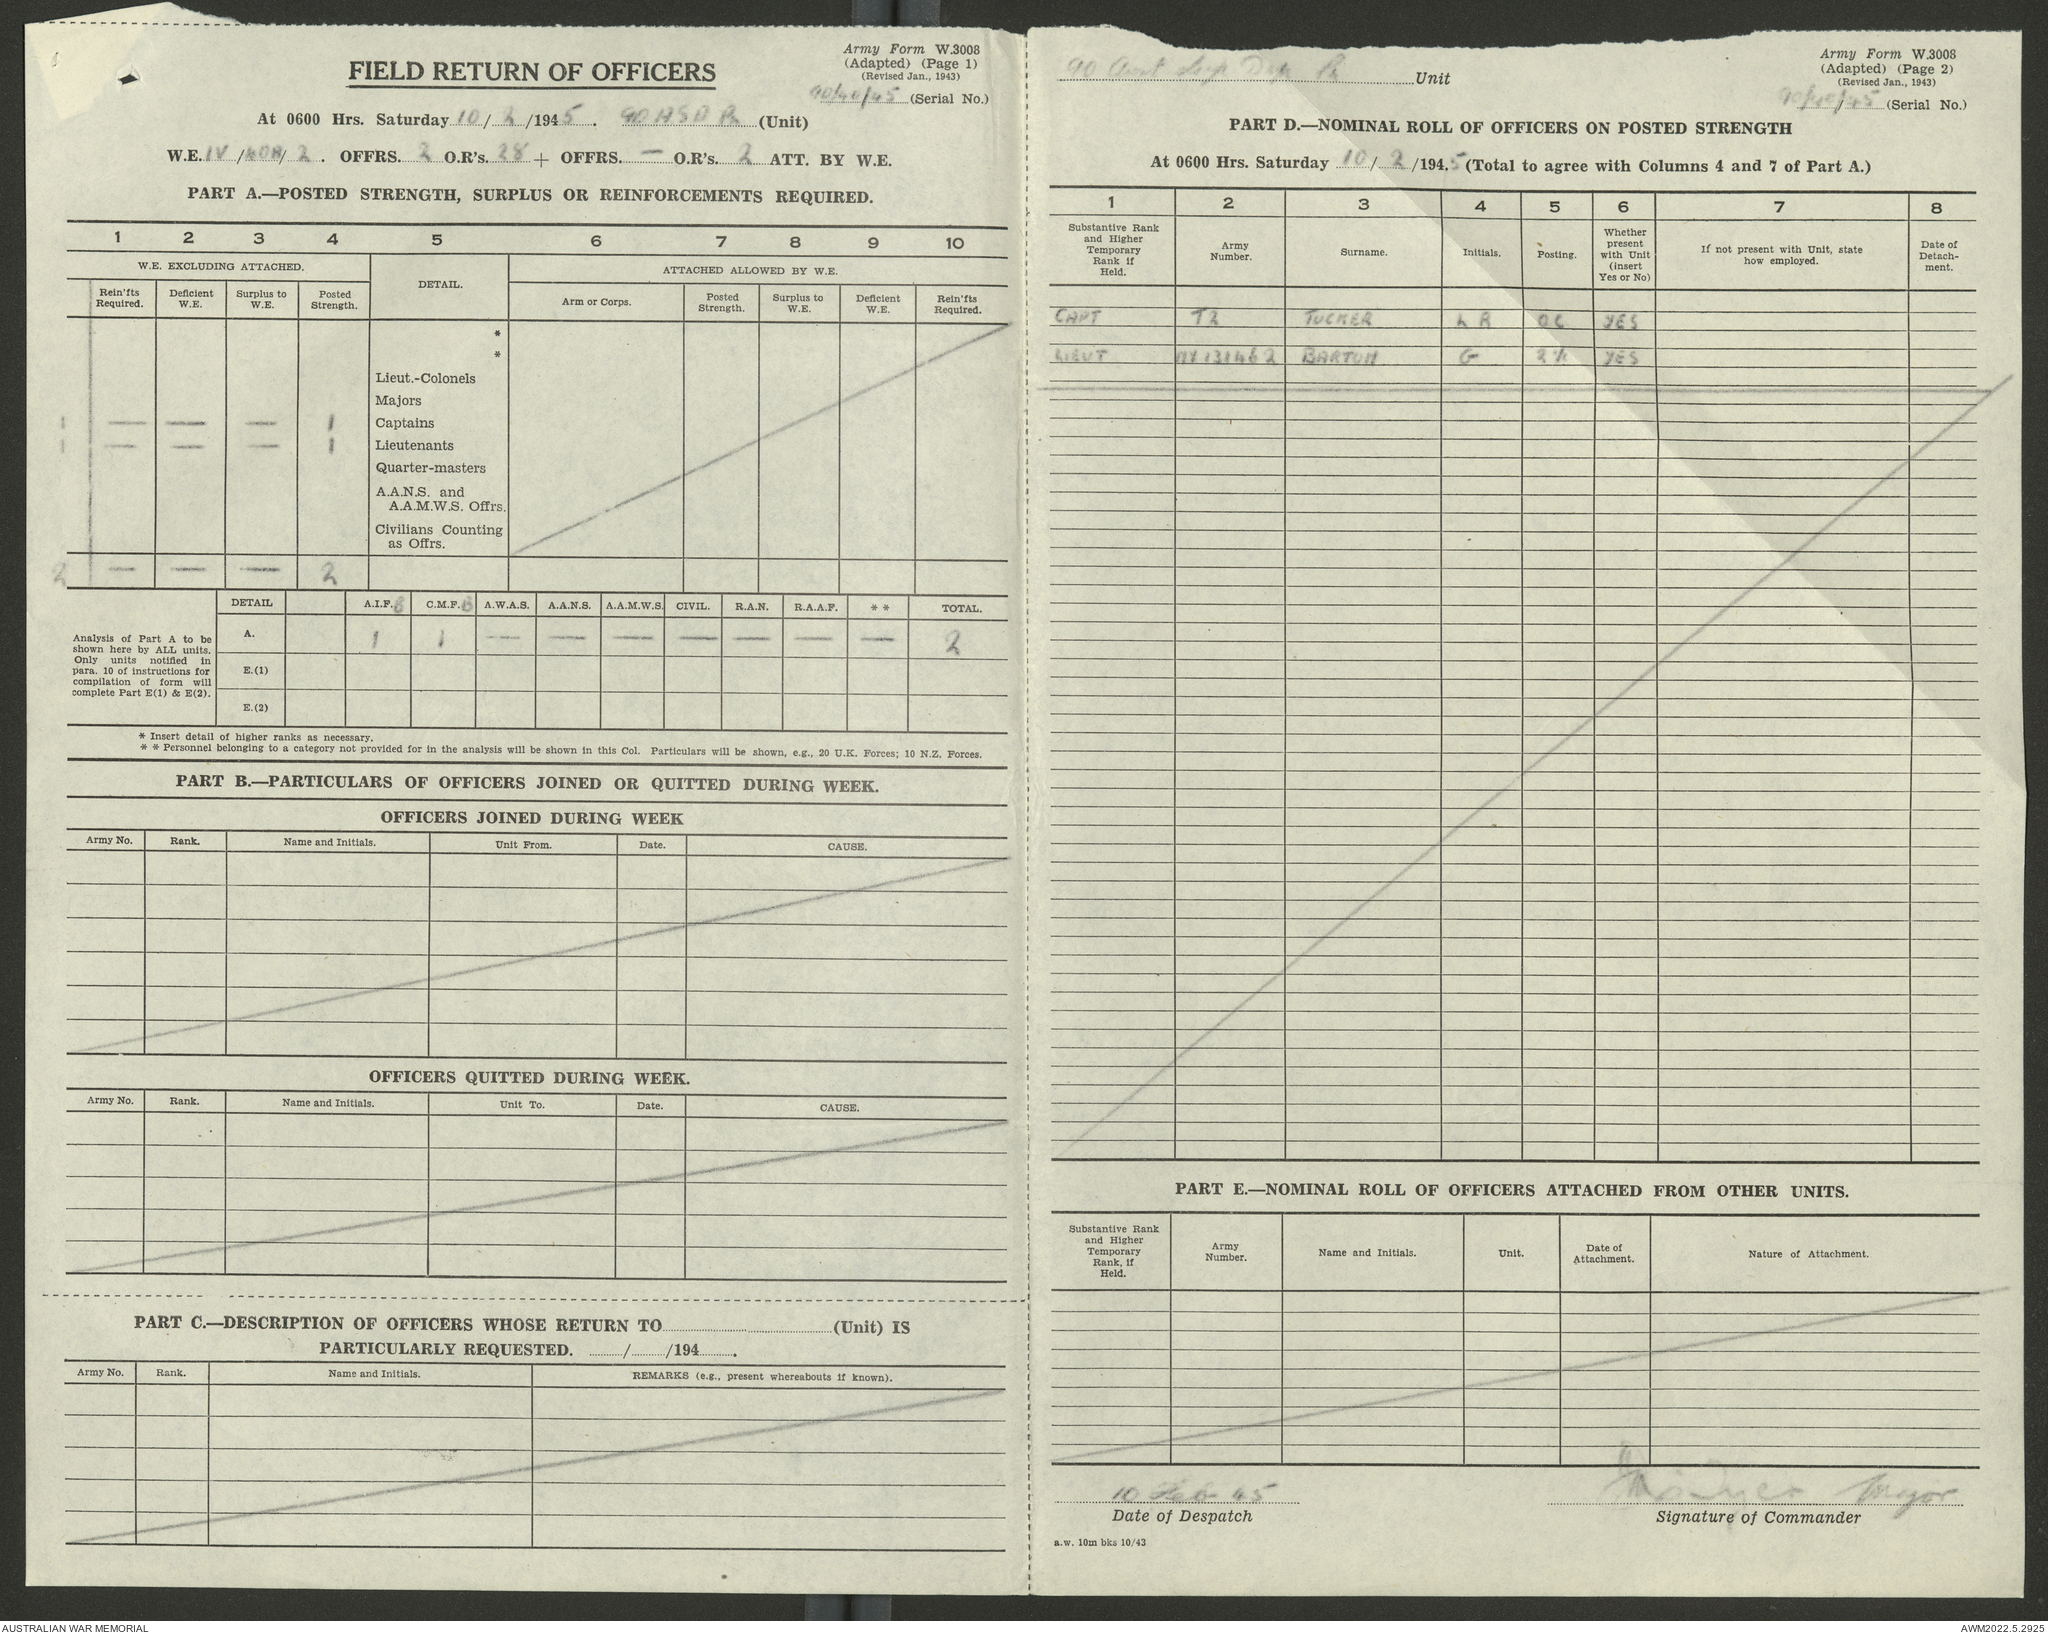 Army Form W.3008
(Adapted) (Page 1)
(Revised Jan., 1943)
FIELD RETURN OF OFFICERS
90/40/45 (Serial No.)
At 0600 Hrs. Saturday 10/2/1945. 90 ASD Pn (Unit)
W.E. IV/40A/2. OFFRS. 2 O.R's. 28 + OFFRS. — O.R's. 2 ATT. BY W.E.
PART A.—POSTED STRENGTH, SURPLUS OR REINFORCEMENTS REQUIRED.
1 2 3 4 5 6 7 8 9 10
W.E. EXCLUDING ATTACHED. DETAIL. ATTACHED ALLOWED BY W.E.
Rein'fts Required. Deficient W.E. Surplus to W.E. Posted Strength. Arm or Corps. Posted Strength. Surplus to W.E. Deficient W.E. Rein'fts Required.
*
*
Lieut.-Colonels
Majors
1 — — — 1 Captains
1 — — — 1 Lieutenants
Quarter-masters
A.A.N.S. and
A.A.M.W.S. Offrs.
Civilians Counting
as Offrs.
2 — — — 2
DETAIL A.I.F. B C.M.F. B A.W.A.S. A.A.N.S. A.A.M.W.S. CIVIL. R.A.N. R.A.A.F. * * TOTAL.
Analysis of Part A to be
shown here by ALL units.
Only units notified in
para. 10 of instructions for
compilation of form will
complete Part E(1) & E(2).
A. 1 1 — — — — — — — 2
E.(1)
E.(2)
* Insert detail of higher ranks as necessary.
* * Personnel belonging to a category not provided for in the analysis will be shown in this Col. Particulars will be shown, e.g., 20 U.K. Forces; 10 N.Z. Forces.
PART B.—PARTICULARS OF OFFICERS JOINED OR QUITTED DURING WEEK.
OFFICERS JOINED DURING WEEK
Army No. Rank. Name and Initials. Unit From. Date. CAUSE.
OFFICERS QUITTED DURING WEEK.
Army No. Rank. Name and Initials. Unit To. Date. CAUSE.
PART C.—DESCRIPTION OF OFFICERS WHOSE RETURN TO (Unit) IS
PARTICULARLY REQUESTED. / /194 .
Army No. Rank. Name and Initials. REMARKS (e.g., present whereabouts if known).
Army Form W.3008
(Adapted) (Page 2)
(Revised Jan., 1943)
90 Aust Sup Dep Pn Unit
90/40/45 (Serial No.)
PART D.—NOMINAL ROLL OF OFFICERS ON POSTED STRENGTH
At 0600 Hrs. Saturday 10/2/1945 (Total to agree with Columns 4 and 7 of Part A.)
1 2 3 4 5 6 7 8
Substantive Rank and Higher Temporary Rank if Held. Army Number. Surname. Initials. Posting. Whether present with Unit (insert Yes or No) If not present with Unit, state how employed. Date of Detach-ment.
CAPT TZ TUCKER L R OC YES
LIEUT NX131462 BARTON G 2i/c YES
PART E.—NOMINAL ROLL OF OFFICERS ATTACHED FROM OTHER UNITS.
Substantive Rank and Higher Temporary Rank, if Held. Army Number. Name and Initials. Unit. Date of Attachment. Nature of Attachment.
10 Feb 45 Major
Date of Despatch Signature of Commander
a.w. 10m bks 10/43
AUSTRALIAN WAR MEMORIAL AWM2022.5.2925